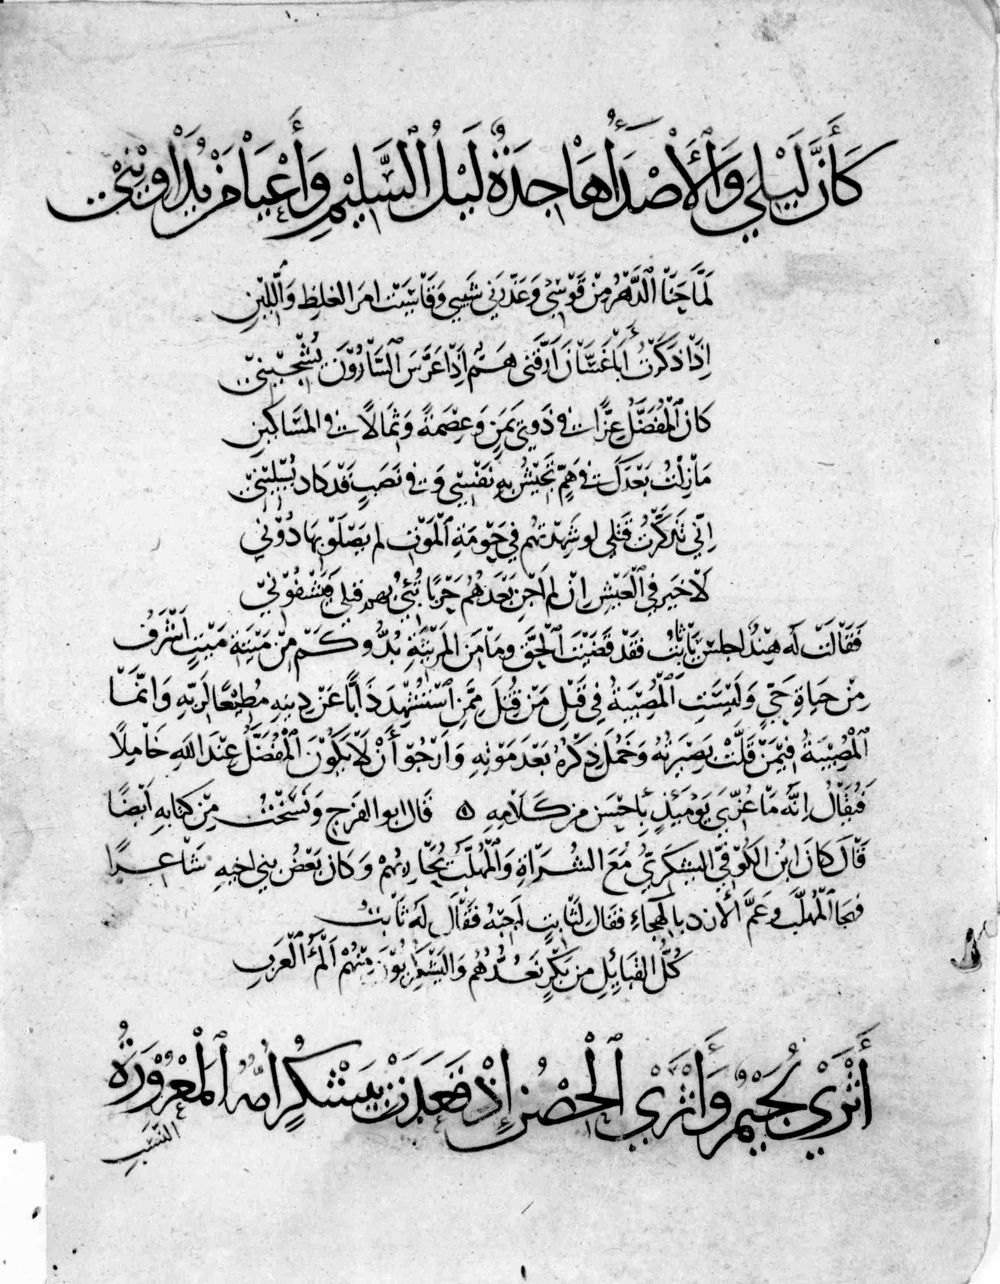 كَأَنَّ لَيْلِي وَالْأَصْدَاءُ هَاجِدَةٌ لَيْلُ السَّلِيْمِ وَأَعْيَا مَنْ يُدَاوِيْنِي
لَمَّا حَنَا الدَّهْرُ مِنْ قَوْسِي وَعَذَّرَنِي شَيْبِي وَقَاسَيْتُ امرَ الغلظِ وَاللِّيْنِ
اِذَا ذَكَرْتُ أَبَا غَسَّانَ اَرَّقَنِي هَمٌّ اِذَا عَرَّسَ السَّارُوْنَ يُشْجِيْنِي
كانَ الْمُفَضَّلُ عِزًّا فِي ذَوِي يَمَنٍ وَعِصْمَةً وَثِمَالًا فِي المَسَاكِيْنِ
مَا زِلْتُ بَعْدَكَ فِي هَمٍّ تَجِيْشُ بِهِ نَفْسِي وَفِي نَصَبٍ قَدْ كَادَ يُبْلِيْنِي
اِنِّي تَذَكَّرْتُ قَتْلَى لو شَهِدْتُهُم فِي حَوْمَةِ الْمَوْتِ لم يَصْلَوْا بِهَا دُوْنِي
لَا خَيْرَ فِي الْعَيْشِ اِنْ لم اَجْنِ بَعْدَهُمُ حَرْبًا تُبِيْءُ بهم قتلى فَيَشْفُوْنِي
فَقَالَتْ لَه هِنْدٌ اجلسْ يَا ثَابِتُ فَقَدْ قَضَيْتَ الْحَقَّ وَمَا مِنَ المَرْزِئَةِ بُدٌّ وكَمْ مِنْ مَيْتَةِ مَيِّتٍ اَشْرَفُ
مِنْ حَيَاةِ حَيٍّ وَلَيْسَتِ الْمُصِيْبَةُ فِي قَتْلِ مَنْ قُتِلَ مِمَّنِ اسْتُشْهِدَ ذَابًّا عَنْ دِيْنِهِ مُطِيْعًا لِرَبِّهِ وَانَّمَا
الْمُصِيْبَةُ فِيْمَنْ قَلَّتْ بَصِيْرَتُهُ وَخَمَلَ ذِكْرُهُ بَعْدَ مَوْتِهِ وَاَرْجُوْ أَنْ لَا يَكُوْنَ الْمُفَضَّلُ عِنْدَ اللهِ خَامِلًا
فَيُقَالُ اِنَّهُ مَا عُزِّيَ يَوْمَئِذٍ بِاَحْسَنَ مِنْ كَلَامِهِ ۞ قَالَ ابو الفَرَجِ وَنَسَخْتُ مِنْ كِتَابِهِ اَيْضًا
قَالَ كَانَ ابْنُ الكَوَّاءِ الْيَشْكُرِيُّ مَعَ الشُّرَاةِ وَالْمُهَلَّبُ يُحَارِبُهُمْ وَكَانَ بَعْضُ بَنِي اخيهِ شَاعِرًا
فهَجَا الْمُهَلَّبَ وَعَمَّ الأَزْدَ بالهِجَاءِ فقَالَ لثَابِتٍ اَجِبْهُ فَقَالَ لَهُ ثَابِتٌ
كُلُّ القَبَائِلِ مِنْ بَكْرٍ نَعُدُّهُمُ وَاليَشْكُرِيُّوْنَ مِنْهُمْ اَلْأَمُ الْعَرَبِ
أَثْرَى لُجَيْمٌ وَأَثْرَى الْحِصْنُ إِذْ قَعَدَتْ بِيَشْكُرٍ امُّهُ الْمَعْرُوْرَةُ
النَّسَبِ